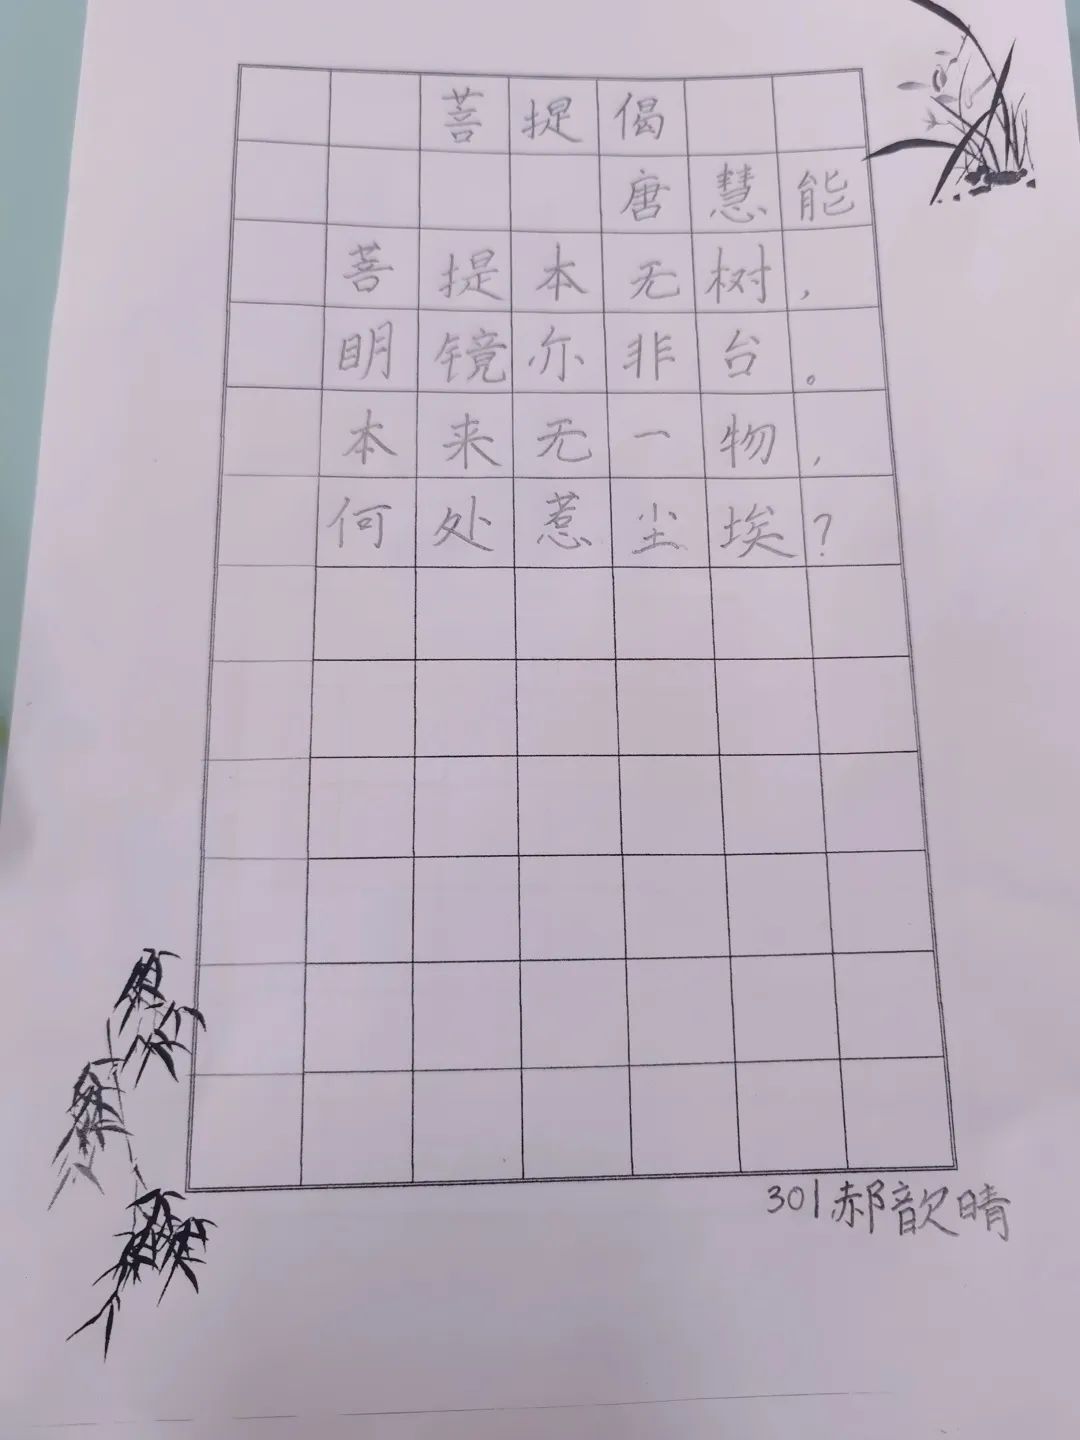 菩提偈
唐慧能
菩提本无树，
明镜亦非台。
本来无一物，
何处惹尘埃？
301郝歆晴